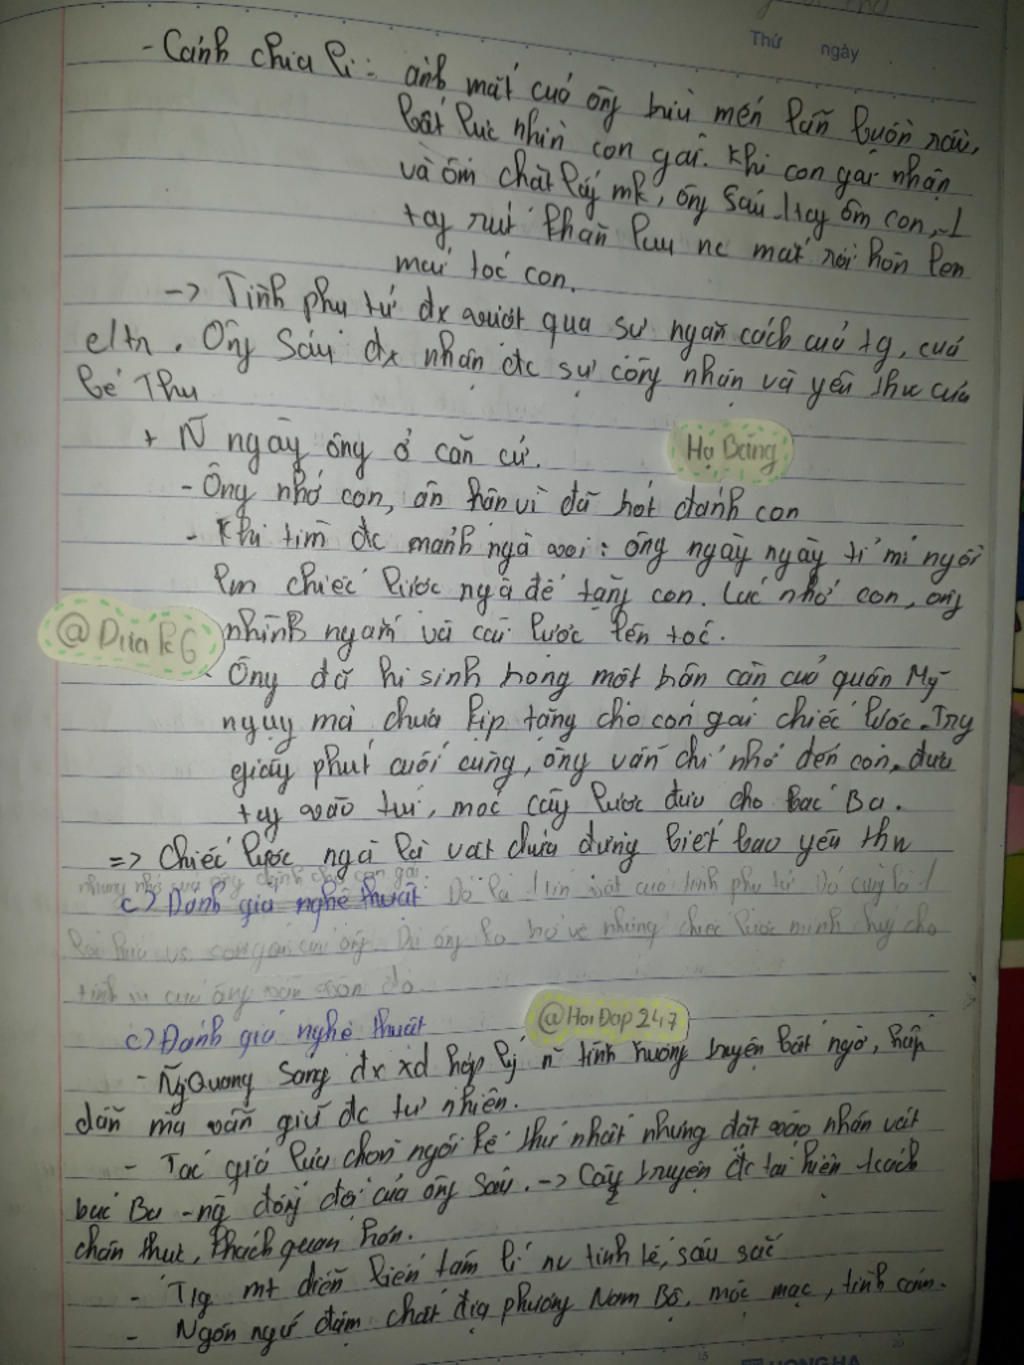 Thứ ngày
- Cảnh chia li: ánh mắt cuả ông trìu mến lẫn buồn rầu,
bất lực nhìn con gái. Khi con gái nhận
và ôm chặt lấy mk, ông Sáu 1 tay ôm con, 1
tay rút khăn lau nc mắt rồi hôn lên
mái tóc con.
-> Tình phụ tử đx vượt qua sự ngăn cách cuả tg, cuả
c/tr. Ông Sáu đx nhận đc sự công nhận và yêu thw cuả
bé Thu
+ N̄ ngày ông ở căn cứ.
Hạ Băng
- Ông nhớ con, ân hận vì đã hốt đánh con
- Khi tìm đc mảnh ngà voi: ông ngày ngày tỉ mỉ ngồi
lm chiếc lược ngà để tặng con. Lúc nhớ con, ông
@Dưa k6
nhình ngắm và cài lược lên tóc.
- Ông đã hi sinh trong một trận càn cuả quân Mỹ-
ngụy mà chưa kịp tặng cho con gái chiếc lược. Trg
giây phút cuối cùng, ông vẫn chỉ nhớ đến con, đưa
tay vào túi, móc cây lược đưa cho bác Ba.
=> Chiếc lược ngà là vật chứa đựng biết bao yêu thw
nhung nhớ cuả ông dành cho con gái.
c) Đánh giá nghệ thuật Đó là 1 tín vật cuả tình phụ tử Đó cũng là 1
con gái cuả ông. Dù ông ko trở về nhưng chiếc lược minh chứng cho
tình cuả ông vẫn còn đó
@HoiDap247
c) Đánh giá nghệ thuật
- Ng̃ Quang Sáng đx xd hợp lý n̄ tình huống truyện bất ngờ, hấp
dẫn mà vẫn giữ đc tự nhiên.
- Tác giả lựa chọn ngôi kể thứ nhất nhưng đặt vào nhân vật
bác Ba - ng̀ đồng đội cuả ông Sáu. -> Câu truyện đc tái hiện 1 cách
chân thực, khách quan hơn.
- T/g mt diễn biến tâm lí nv tinh tế, sâu sắc
- Ngôn ngữ đậm chất địa phương Nam Bộ, mộc mạc, tình cảm.
HONGHA